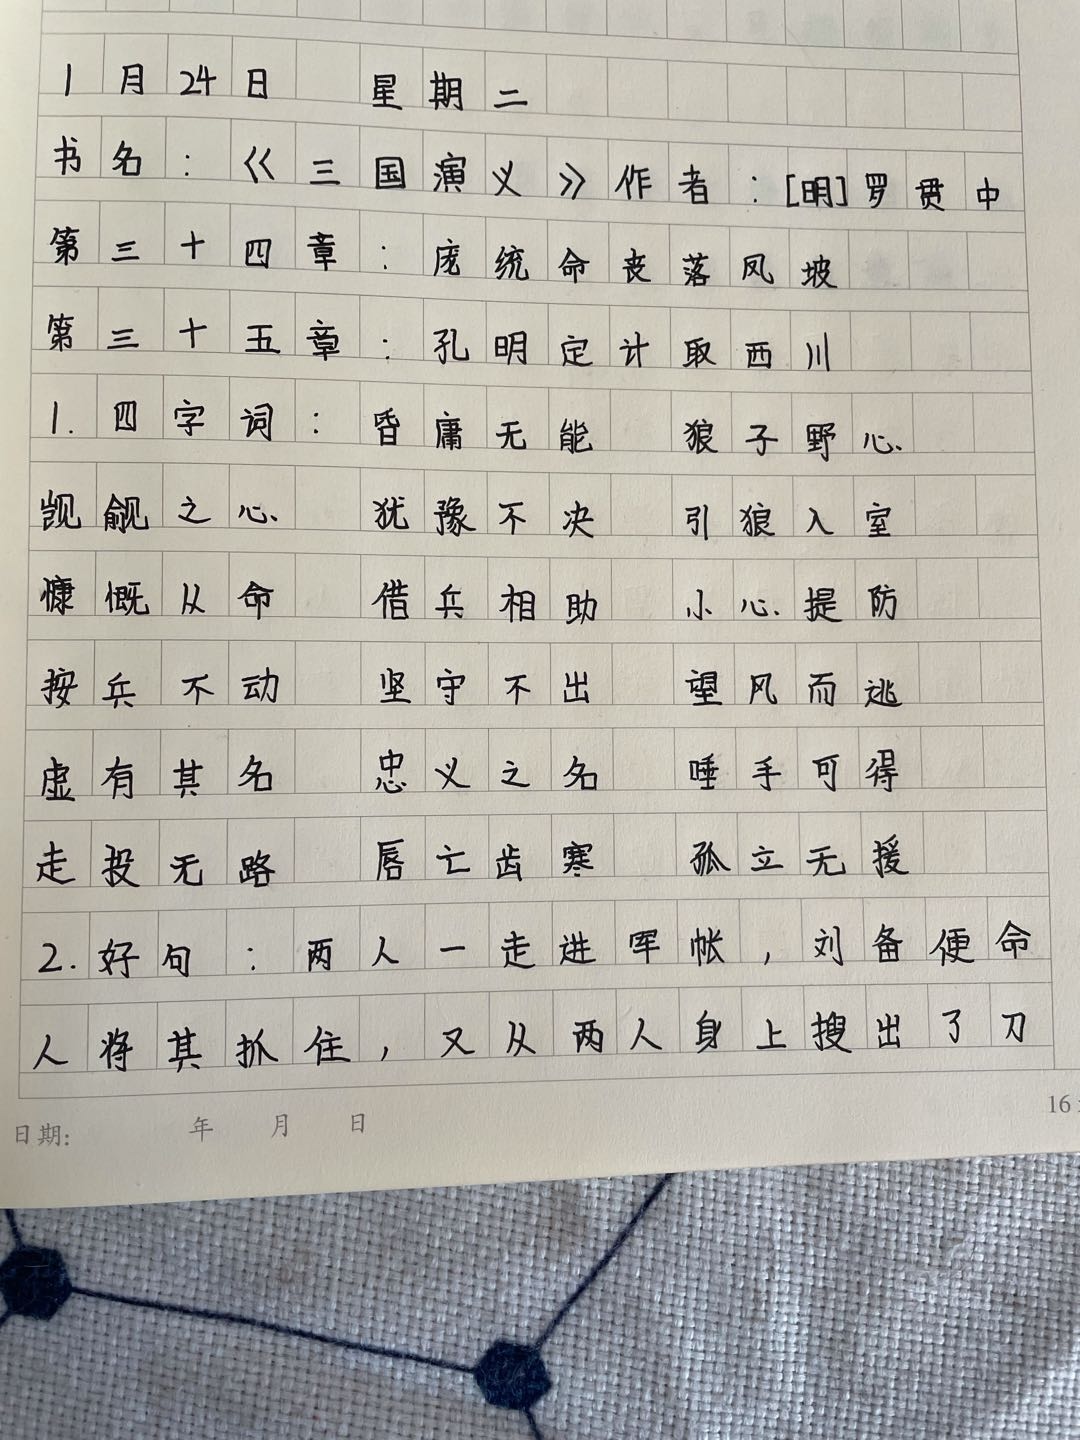 1月24日 星期二
书名：《三国演义》作者：[明]罗贯中
第三十四章：庞统命丧落凤坡
第三十五章：孔明定计取西川
1.四字词：昏庸无能 狼子野心
觊觎之心 犹豫不决 引狼入室
慷慨从命 借兵相助 小心提防
按兵不动 坚守不出 望风而逃
虚有其名 忠义之名 唾手可得
走投无路 唇亡齿寒 孤立无援
2.好句：两人一走进军帐，刘备便命
人将其抓住，又从两人身上搜出了刀
日期: 年 月 日
16